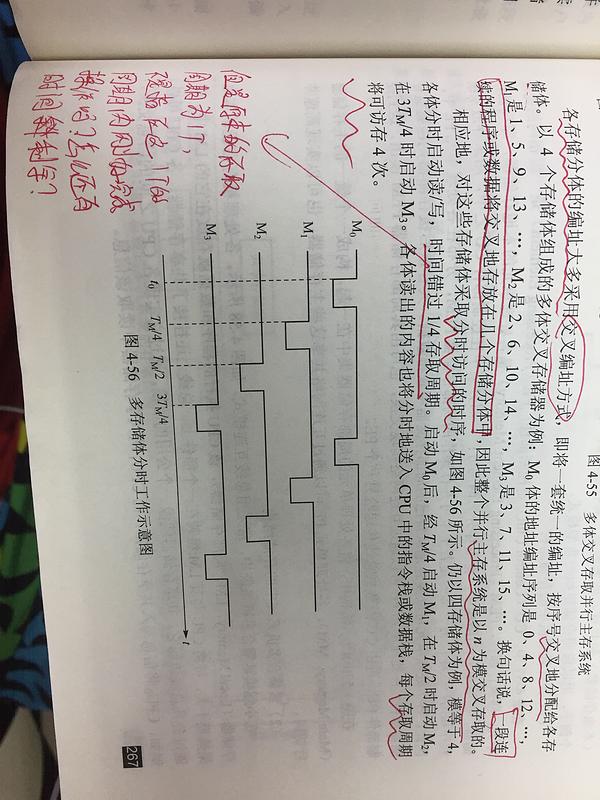 图 4-55 多体交叉存取并行主存系统
各存储分体的编址大多采用交叉编址方式，即将一套统一的编址，按序号交叉地分配给各存
储体。以 4 个存储体组成的多体交叉存储器为例：M₀ 体的地址编址序列是 0、4、8、12、…，
M₁ 是 1、5、9、13、…，M₂ 是 2、6、10、14、…，M₃ 是 3、7、11、15、…。换句话说，一段连
续的程序或数据将交叉地存放在几个存储分体中，因此整个并行主存系统是以 n 为模交叉存取的。
相应地，对这些存储体采取分时访问的时序，如图 4-56 所示。仍以四存储体为例，模等于 4，
各体分时启动读/写，时间错过 1/4 存取周期。启动 M₀ 后，经 Tₘ/4 启动 M₁，在 Tₘ/2 时启动 M₂，
在 3Tₘ/4 时启动 M₃。各体读出的内容也将分时地送入 CPU 中的指令栈或数据栈，每个存取周期
将可访存 4 次。
M₀
M₁
M₂
M₃
t₀ Tₘ/4 Tₘ/2 3Tₘ/4 t
图 4-56 多存储体分时工作示意图
但是原来的存取
周期为1T，
现在在1T的
周期内
操作吗？怎么还有
时间
267